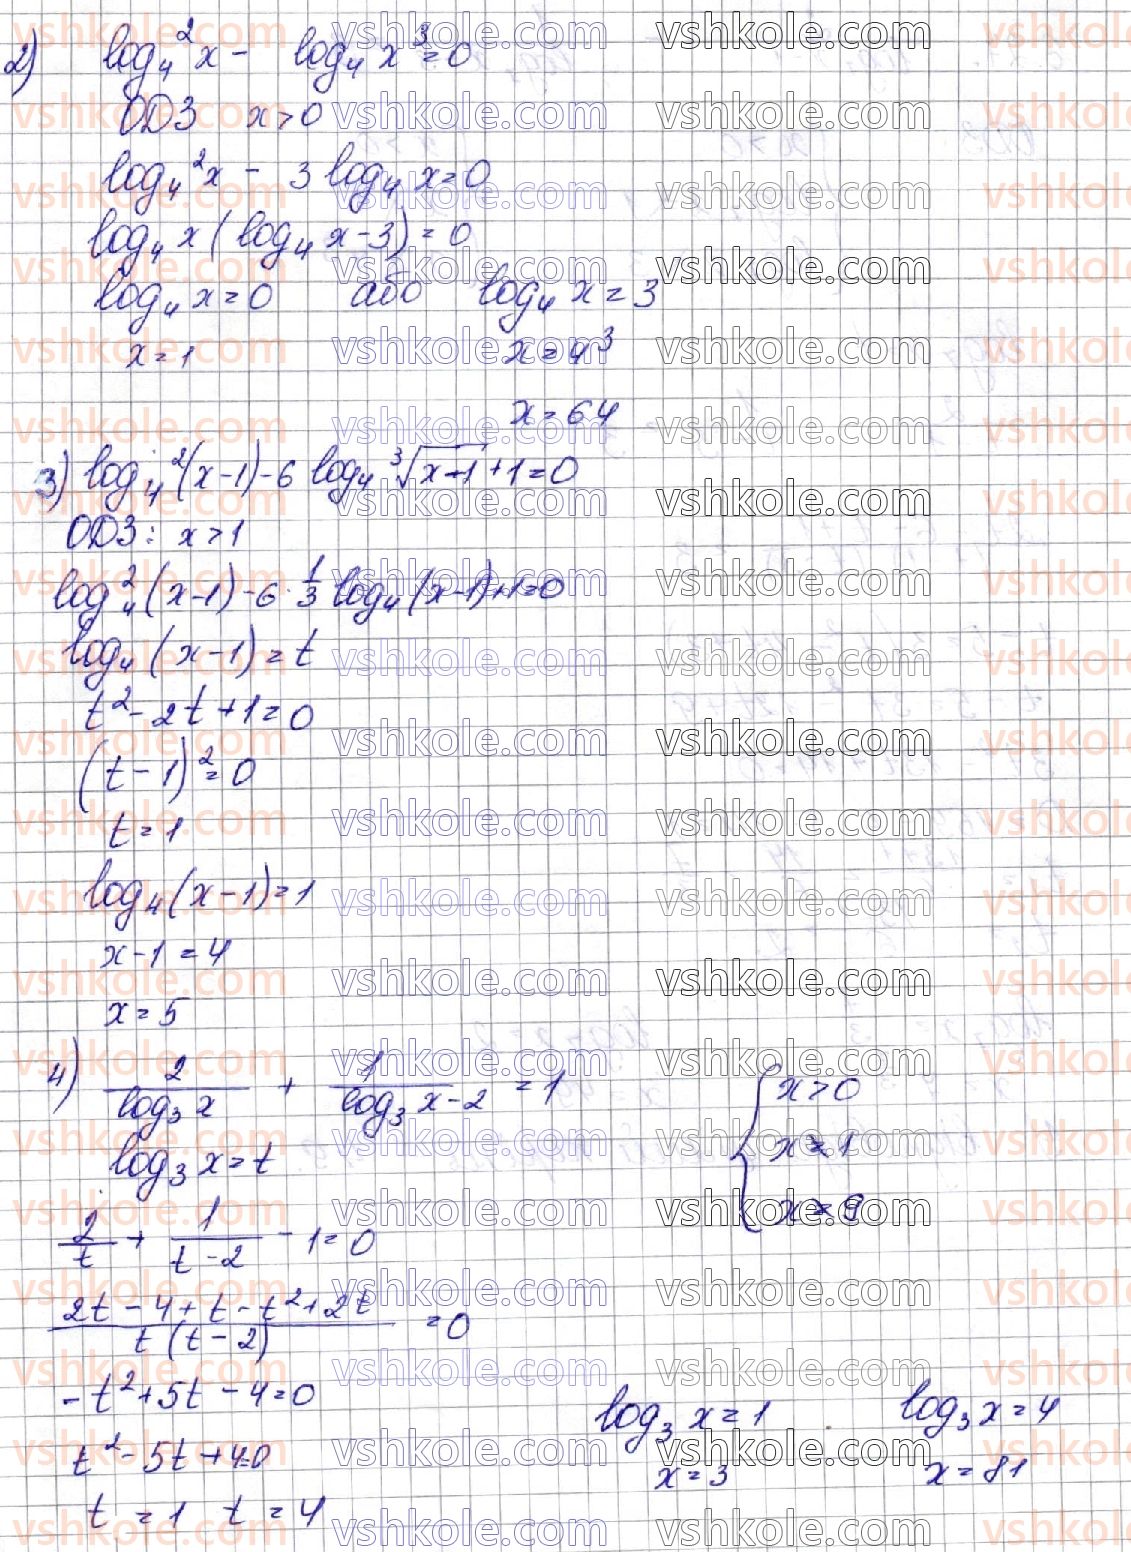 2) log₄²x - log₄x³=0
ОДЗ x>0
log₄²x - 3log₄x=0
log₄x(log₄x-3)=0
log₄x=0 або log₄x=3
x=1 x=4³
x=64
3) log₄²(x-1)-6 log₄∛(x-1)+1=0
ОДЗ: x>1
log₄²(x-1)-6·1/3 log₄(x-1)+1=0
log₄(x-1)=t
t²-2t+1=0
(t-1)²=0
t=1
log₄(x-1)=1
x-1=4
x=5
4) 2/log₃x + 1/(log₃x-2) =1 { x>0
log₃x=t x≠1
x≠9
2/t + 1/(t-2) -1=0
(2t-4+t-t²+2t)/(t(t-2)) =0
-t²+5t-4=0 log₃x=1 log₃x=4
t²-5t+4=0 x=3 x=81
t=1 t=4
vshkole.com